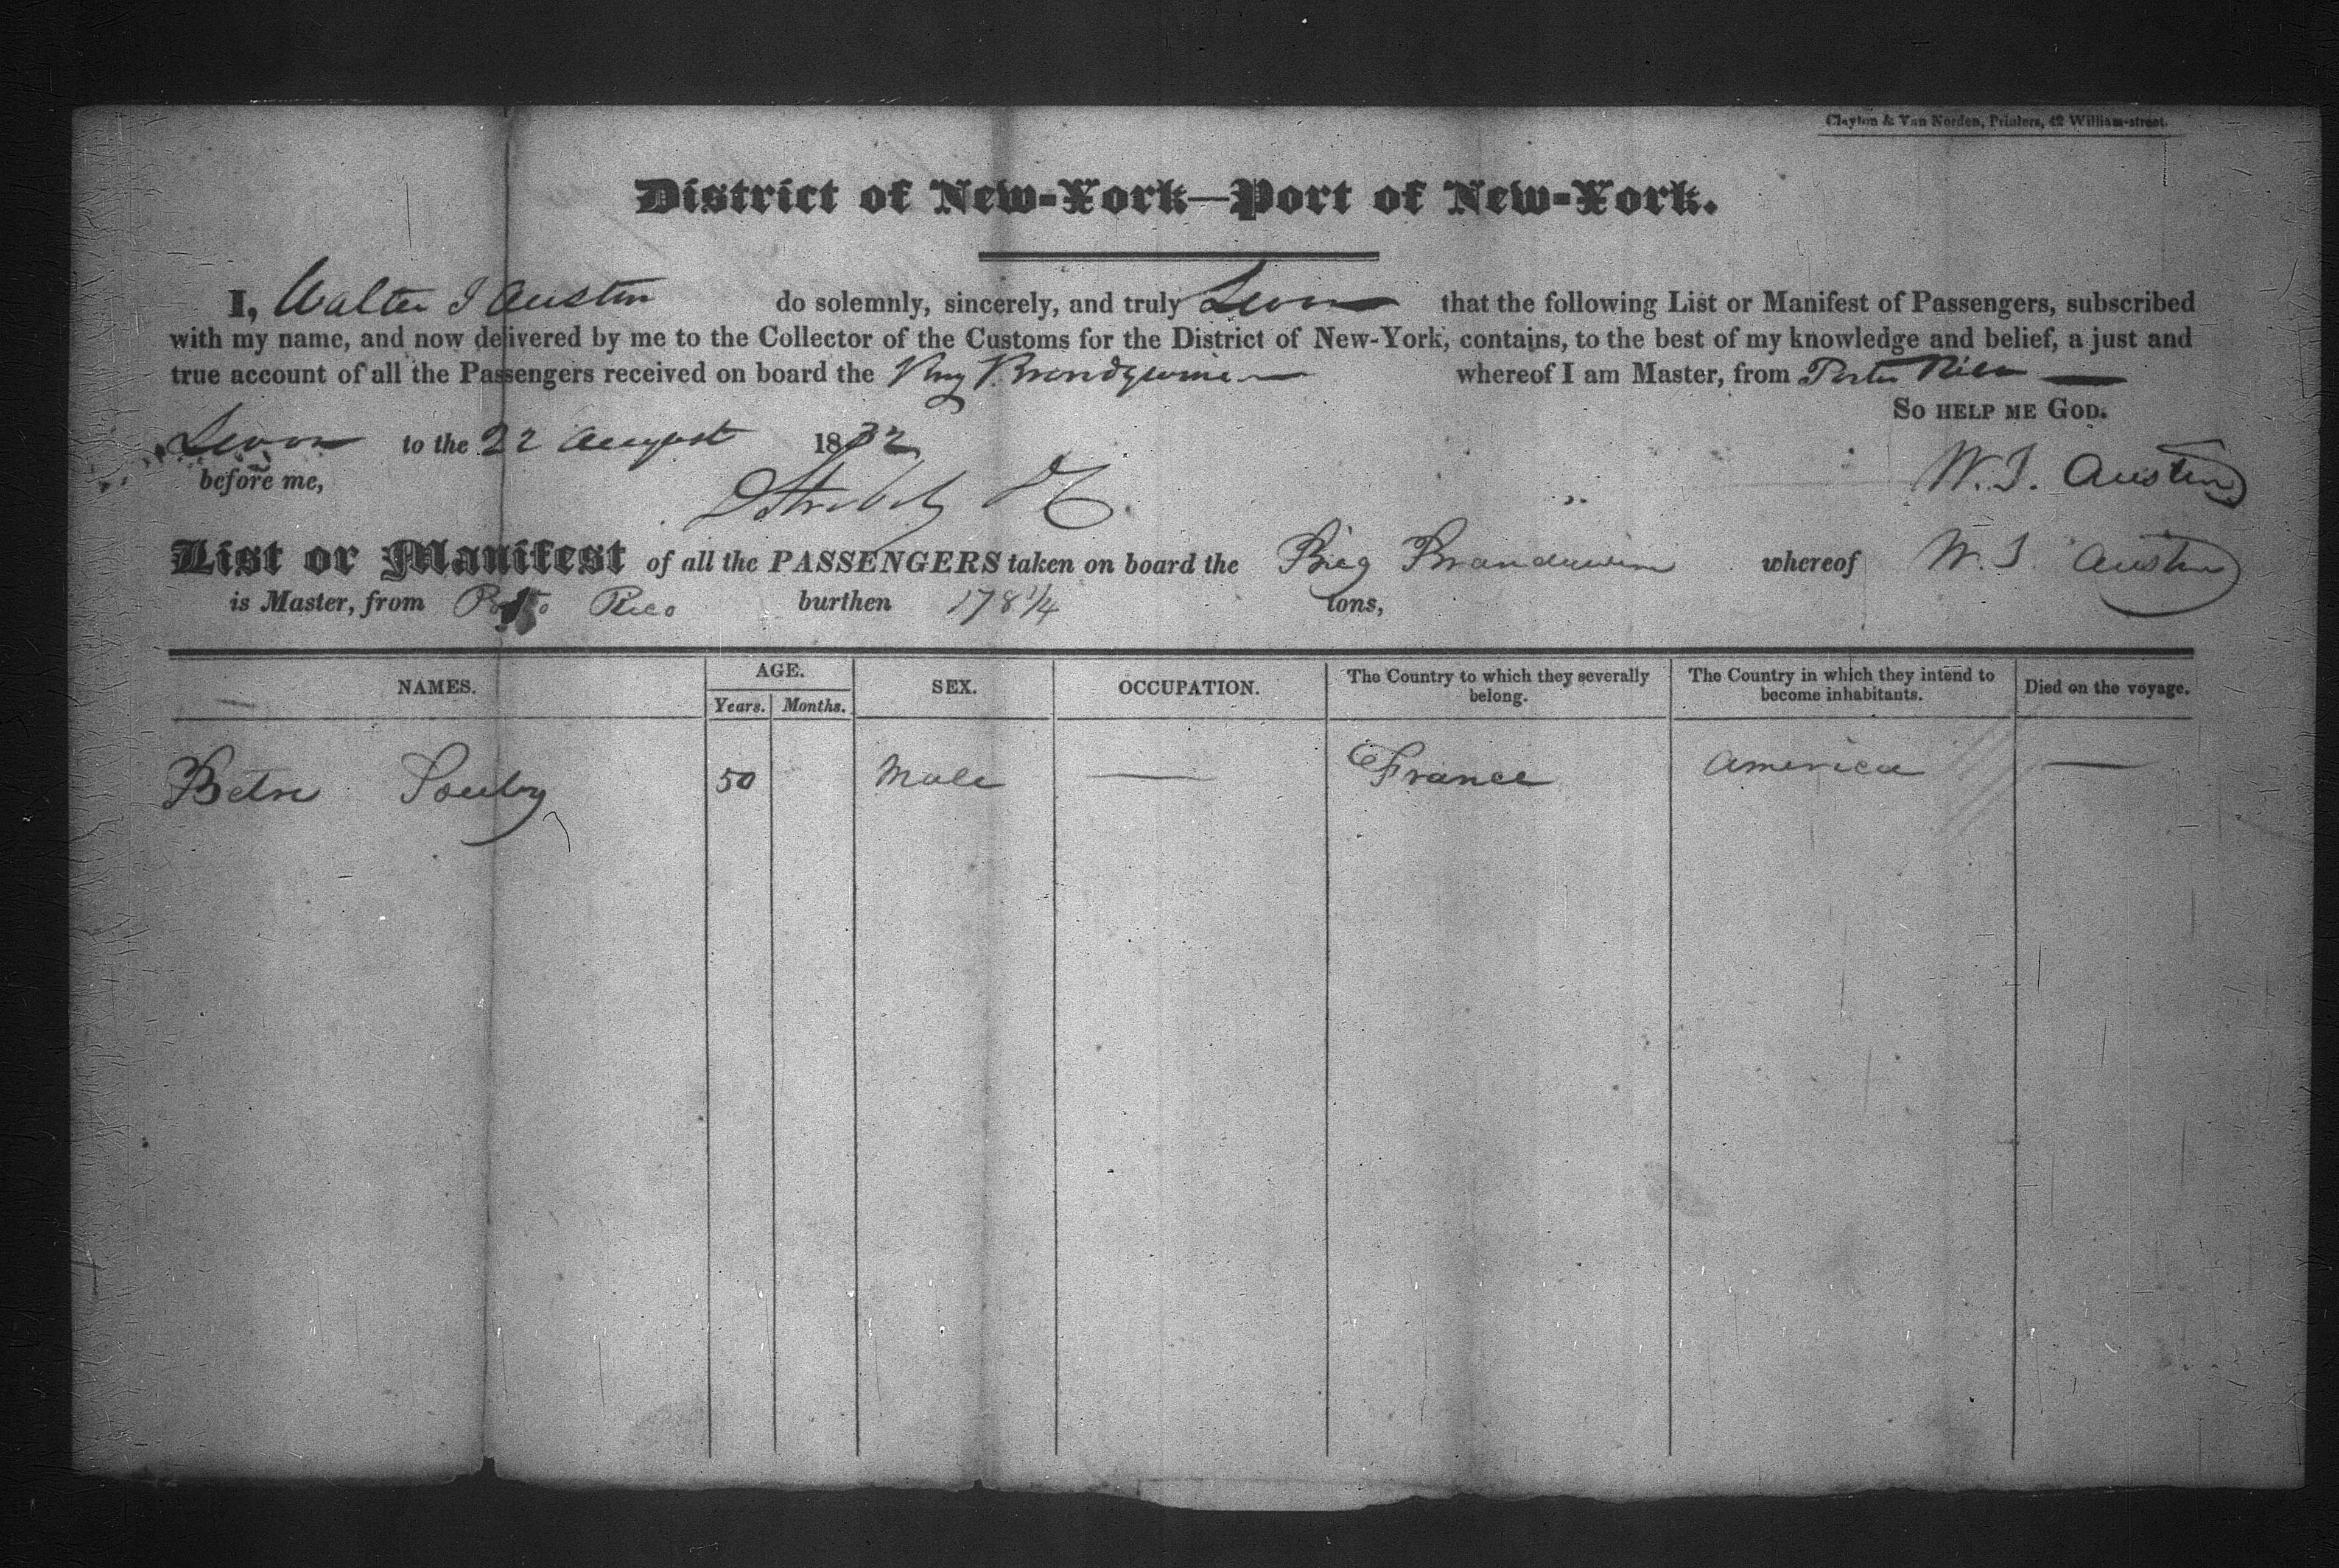 Clayton & Van Norden, Printers, 42 William-street.
District of New-York—Port of New-York.
I, Walter J Austin do solemnly, sincerely, and truly Swear that the following List or Manifest of Passengers, subscribed
with my name, and now delivered by me to the Collector of the Customs for the District of New-York, contains, to the best of my knowledge and belief, a just and
true account of all the Passengers received on board the Brig Brandywine whereof I am Master, from Porto Rico
So help me God.
Sworn to the 22 August 1832
before me,
W. J. Austin
List or Manifest of all the PASSENGERS taken on board the Brig Brandywine whereof W. J. Austin
is Master, from Porto Rico burthen 178 1/4 tons,
NAMES. AGE. Years. Months. SEX. OCCUPATION. The Country to which they severally belong. The Country in which they intend to become inhabitants. Died on the voyage.
50 Male — France America —